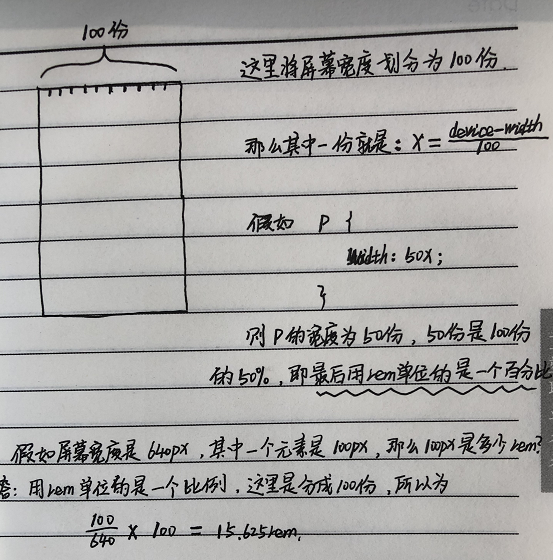 100份
这里将屏幕宽度划分为100份.
那么其中一份就是: X = device-width / 100
假如 P {
width: 50X;
}
则P的宽度为50份, 50份是100份
的50%, 即最后用rem单位的是一个百分比
假如屏幕宽度是640px, 其中一个元素是100px, 那么100px是多少rem?
答: 用rem单位的是一个比例, 这里是分成100份, 所以为
100 / 640 × 100 = 15.625rem.